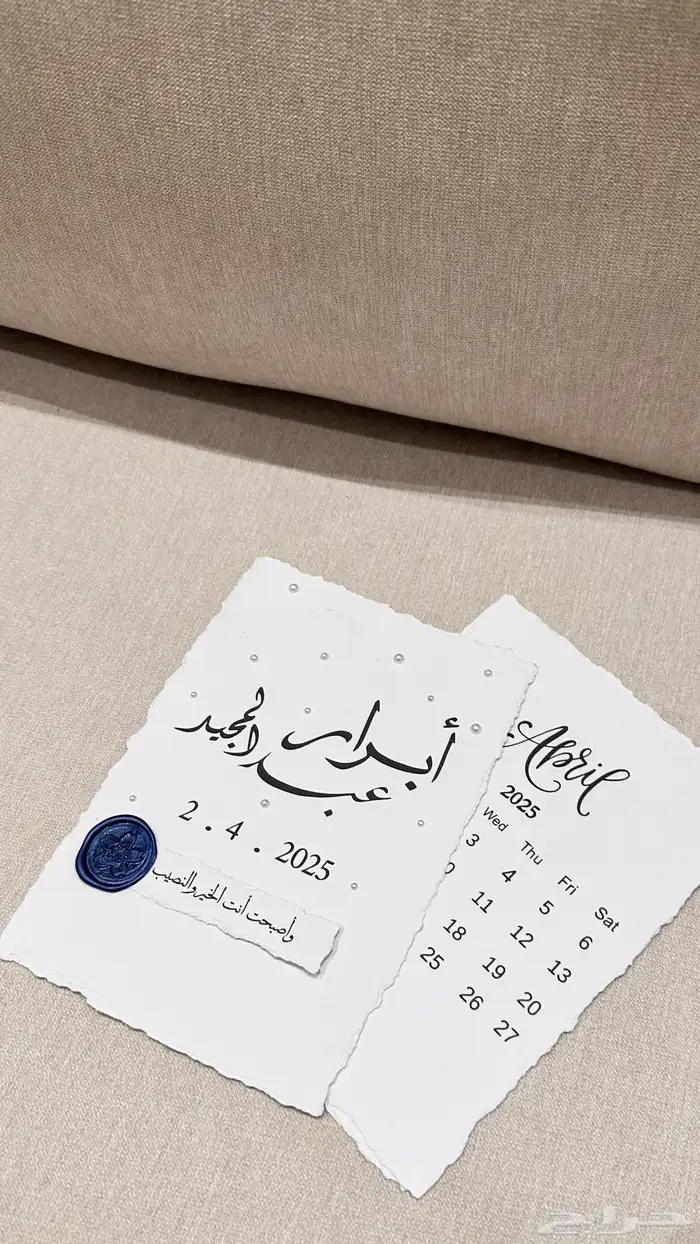 أبرار
عبدالمجيد
2 . 4 . 2025
وأصبحت أنت الخير والنصيب
April
2025
Wed Thu Fri Sat
3 4 5 6
11 12 13
18 19 20
25 26 27
حراج